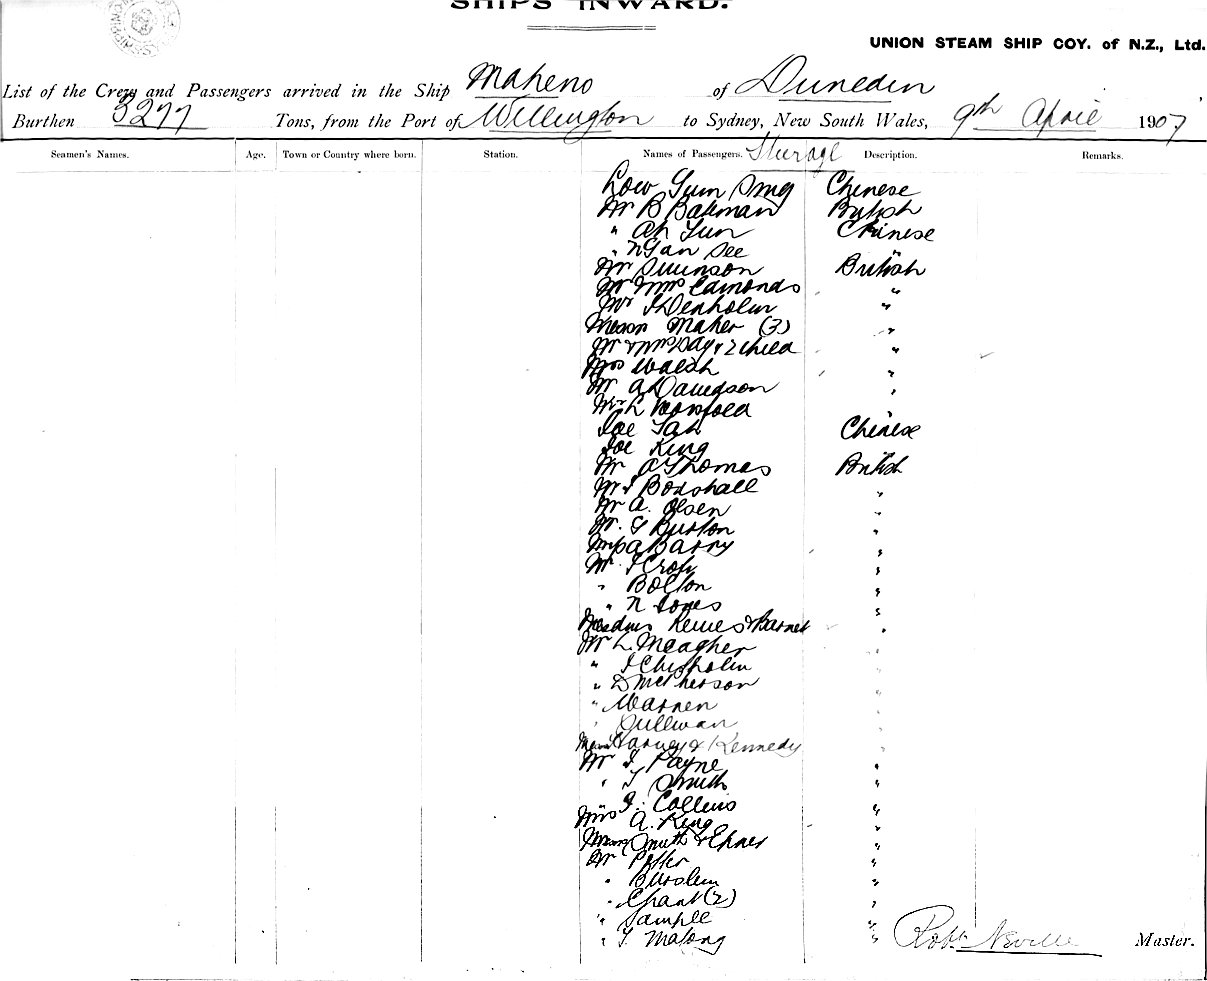 SHIPS INWARD.
UNION STEAM SHIP COY. of N.Z., Ltd.
List of the Crew and Passengers arrived in the Ship Maheno of Dunedin
Burthen 3277 Tons, from the Port of Wellington to Sydney, New South Wales, 9th April 1907
Seamen's Names. Age. Town or Country where born. Station. Names of Passengers. Steerage Description. Remarks.
Low Gum Sing Chinese
Mr B Bateman British
" Ah Sun Chinese
" See "
Mr Swinson British
Mr Mrs Edmonds "
Mr Denholm "
Messrs Maher (3) "
Mr & Mrs Day & 2 child "
Mrs Walsh "
Mr A Davidson "
Mr L
Joe Tah Chinese
Joe King
Mr A Thomas British
Mr J Boxshall "
Mr A. Olsen "
Mr. G Burton "
A Barry "
Mr J Crop "
" Bolton "
" N Jones "
Mesdms & Barnet "
Mr L. Meagher "
" J Chisholm "
" D McPherson "
" Warren "
" Sullivan "
Messrs Harvey & Kennedy "
Mr J. Payne "
" T Smith "
" J. Collins "
Mrs A. King "
Messrs Smith & "
Mr "
" Burslem "
" Chant (2) "
" Sample "
" T. "
Robt Neville Master.